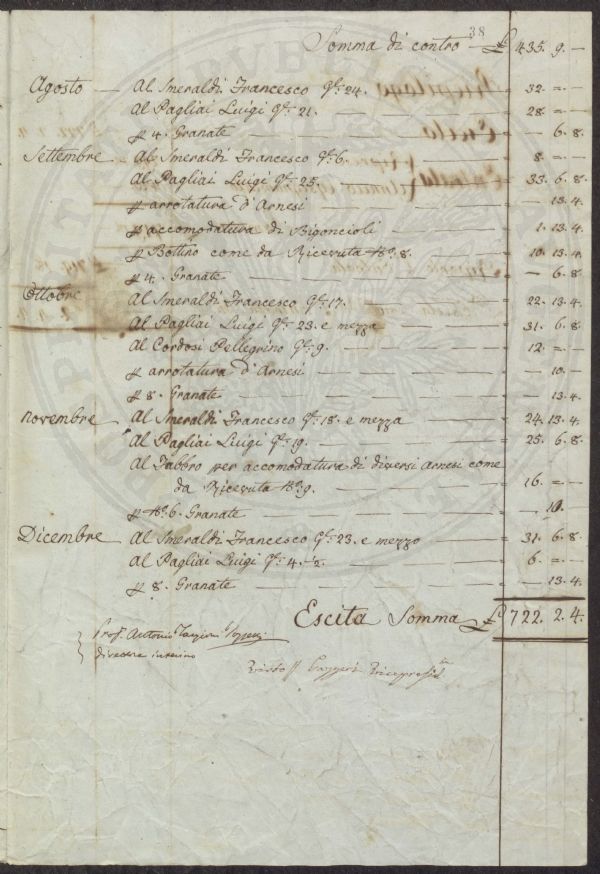 38
Somma di contro — £ 435. 9. —
Agosto — Al Smeraldi Francesco Gte: 24. — 32. = . —
Al Pagliai Luigi Gte: 21. — 28. = . —
p 4. Granate — — 6. 8.
Settembre — Al Smeraldi Francesco Gte: 6. — 8. = . —
Al Pagliai Luigi Gte: 25. — 33. 6. 8.
p arrotatura d'Arnesi — — 13. 4.
p accomodatura di Bigoncioli — 1. 13. 4.
p Bottino come da Ricevuta No. 8. — 10. 13. 4.
p 4. Granate — — 6. 8.
Ottobre — Al Smeraldi Francesco Gte: 17. — 22. 13. 4.
Al Pagliai Luigi Gte: 23. e mezza — 31. 6. 8.
Al Cordosi Pellegrino Gte: 9. — 12. = . —
p arrotatura d'Arnesi — — 10. —
p 8. Granate — — 13. 4.
Novembre — Al Smeraldi Francesco Gte: 18. e mezza — 24. 13. 4.
Al Pagliai Luigi Gte: 19. — 25. 6. 8.
Al Fabbro per accomodatura di diversi Arnesi come
da Ricevuta No. 9. — 16. = . —
p No. 6. Granate — — 10.
Dicembre — Al Smeraldi Francesco Gte: 23. e mezzo — 31. 6. 8.
Al Pagliai Luigi Gte: 4. ½. — 6. = . —
p 8. Granate — — 13. 4.
Escita Somma £ 722. 2. 4.
Prof. Antonio Targioni Tozzetti
Direttore interino